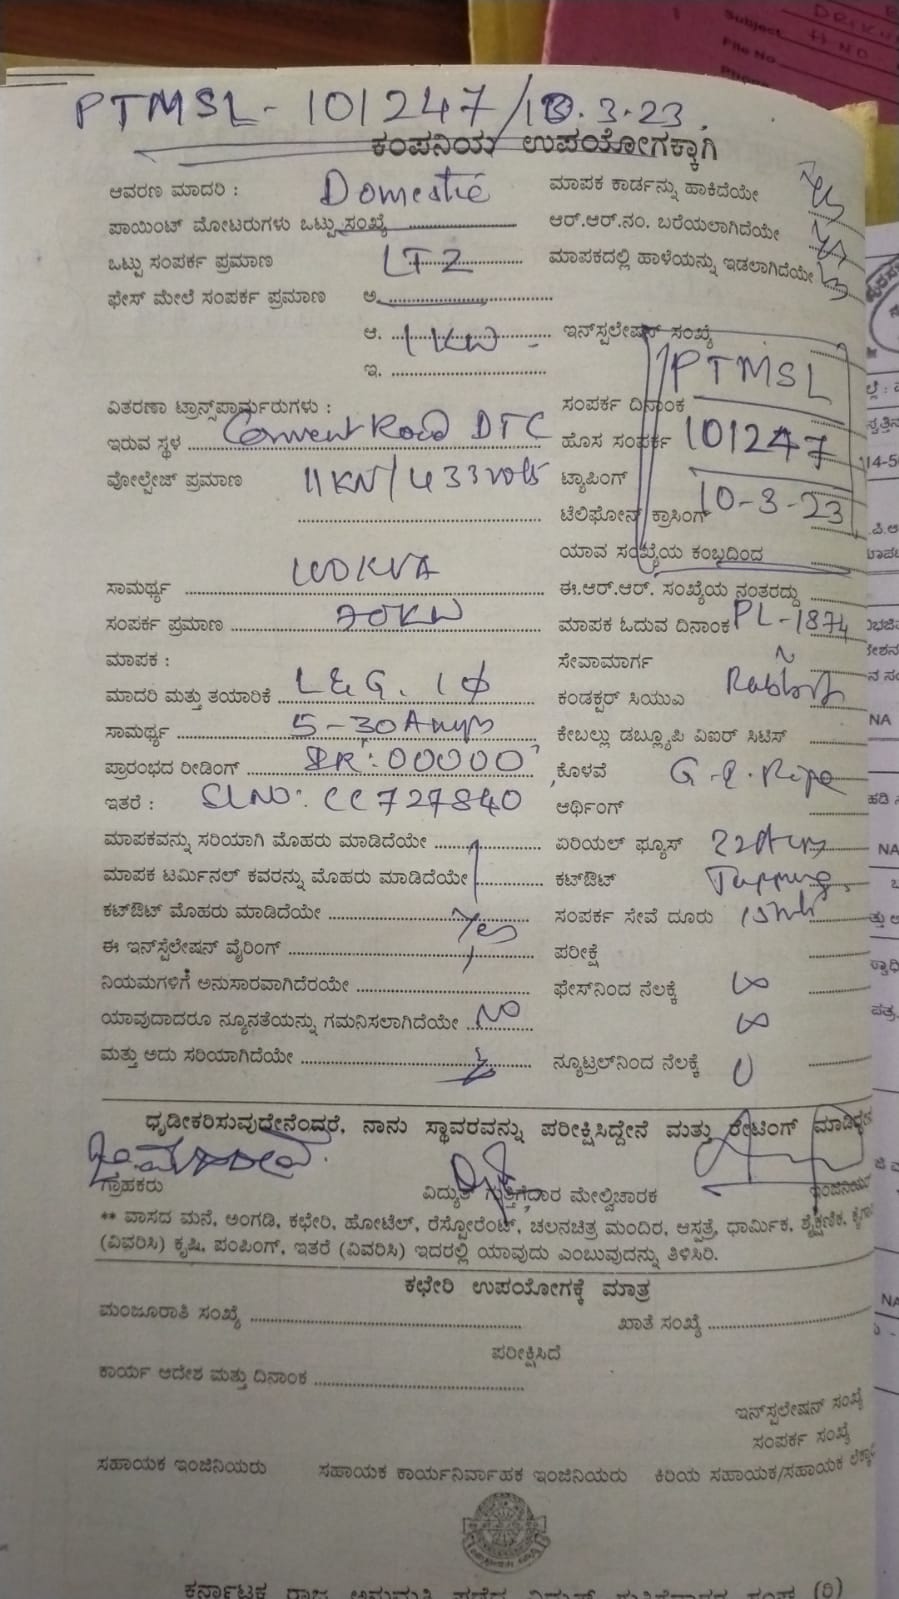 Subject
File No.
PTMSL - 101247/10.3.23.
ಕಂಪನಿಯ ಉಪಯೋಗಕ್ಕಾಗಿ
ಆವರಣ ಮಾದರಿ : Domestic ಮಾಪಕ ಕಾರ್ಡನ್ನು ಹಾಕಿದೆಯೇ Yes
ಪಾಯಿಂಟ್ ಮೋಟರುಗಳು ಒಟ್ಟು ಸಂಖ್ಯೆ ಆರ್.ಆರ್.ನಂ. ಬರೆಯಲಾಗಿದೆಯೇ
ಒಟ್ಟು ಸಂಪರ್ಕ ಪ್ರಮಾಣ LT2 ಮಾಪಕದಲ್ಲಿ ಹಾಳೆಯನ್ನು ಇಡಲಾಗಿದೆಯೇ
ಫೇಸ್ ಮೇಲೆ ಸಂಪರ್ಕ ಪ್ರಮಾಣ ಅ.
ಆ. 1KW ಇನ್‌ಸ್ಪಲೇಷನ್ ಸಂಖ್ಯೆ
ಇ. PTMSL
ವಿತರಣಾ ಟ್ರಾನ್ಸ್‌ಪಾರ್ಮರುಗಳು : ಸಂಪರ್ಕ ದಿನಾಂಕ
ಇರುವ ಸ್ಥಳ Convent Road DTC ಹೊಸ ಸಂಪರ್ಕ 101247
ವೋಲ್ಟೇಜ್ ಪ್ರಮಾಣ 11KV/433volts ಟ್ಯಾಪಿಂಗ್
ಟೆಲಿಫೋನ್ ಕ್ರಾಸಿಂಗ್ 10-3-23
ಯಾವ ಸಂಖ್ಯೆಯ ಕಂಭದಿಂದ
ಸಾಮರ್ಥ್ಯ 100KVA ಈ.ಆರ್.ಆರ್. ಸಂಖ್ಯೆಯ ನಂತರದ್ದು
ಸಂಪರ್ಕ ಪ್ರಮಾಣ 70KW ಮಾಪಕ ಓದುವ ದಿನಾಂಕ PL-1874
ಮಾಪಕ : ಸೇವಾಮಾರ್ಗ
ಮಾದರಿ ಮತ್ತು ತಯಾರಿಕೆ L&G. 1ϕ ಕಂಡಕ್ಟರ್ ಸಿಯುಎ
ಸಾಮರ್ಥ್ಯ 5-30Amps ಕೇಬಲ್ಲು ಡಬ್ಲ್ಯೂಪಿ ವಿಐರ್ ಸಿಟಿಸ್
ಪ್ರಾರಂಭದ ರೀಡಿಂಗ್ IR:00000 ಕೊಳವೆ G.I. Pipe
ಇತರೆ : SLNO: CC727840 ಆರ್ಥಿಂಗ್
ಮಾಪಕವನ್ನು ಸರಿಯಾಗಿ ಮೊಹರು ಮಾಡಿದೆಯೇ ಏರಿಯಲ್ ಫ್ಯೂಸ್
ಮಾಪಕ ಟರ್ಮಿನಲ್ ಕವರನ್ನು ಮೊಹರು ಮಾಡಿದೆಯೇ ಕಟ್‌ಔಟ್ Tapping
ಕಟ್‌ಔಟ್ ಮೊಹರು ಮಾಡಿದೆಯೇ Yes ಸಂಪರ್ಕ ಸೇವೆ ದೂರು
ಈ ಇನ್‌ಸ್ಟೆಲೇಷನ್ ವೈರಿಂಗ್ ಪರೀಕ್ಷೆ
ನಿಯಮಗಳಿಗೆ ಅನುಸಾರವಾಗಿದೆರಯೇ ಫೇಸ್‌ನಿಂದ ನೆಲಕ್ಕೆ ∞
ಯಾವುದಾದರೂ ನ್ಯೂನತೆಯನ್ನು ಗಮನಿಸಲಾಗಿದೆಯೇ NO ∞
ಮತ್ತು ಅದು ಸರಿಯಾಗಿದೆಯೇ ನ್ಯೂಟ್ರಲ್‌ನಿಂದ ನೆಲಕ್ಕೆ 0
ಧೃಡೀಕರಿಸುವುದೇನೆಂದರೆ, ನಾನು ಸ್ಥಾವರವನ್ನು ಪರೀಕ್ಷಿಸಿದ್ದೇನೆ ಮತ್ತು ರೇಟಿಂಗ್
ಗ್ರಾಹಕರು ವಿದ್ಯುತ್ ಗುತ್ತಿಗೆದಾರ ಮೇಲ್ವಿಚಾರಕ ಇಂಜಿನಿಯರ್
** ವಾಸದ ಮನೆ, ಅಂಗಡಿ, ಕಛೇರಿ, ಹೋಟೆಲ್, ರೆಸ್ಟೋರೆಂಟ್, ಚಲನಚಿತ್ರ ಮಂದಿರ, ಆಸ್ಪತ್ರೆ, ಧಾರ್ಮಿಕ, ಶೈಕ್ಷಣಿಕ,
(ವಿವರಿಸಿ) ಕೃಷಿ, ಪಂಪಿಂಗ್, ಇತರೆ (ವಿವರಿಸಿ) ಇದರಲ್ಲಿ ಯಾವುದು ಎಂಬುವುದನ್ನು ತಿಳಿಸಿರಿ.
ಕಛೇರಿ ಉಪಯೋಗಕ್ಕೆ ಮಾತ್ರ
ಮಂಜೂರಾತಿ ಸಂಖ್ಯೆ ಖಾತೆ ಸಂಖ್ಯೆ
ಪರೀಕ್ಷಿಸಿದೆ
ಕಾರ್ಯ ಆದೇಶ ಮತ್ತು ದಿನಾಂಕ
ಇನ್‌ಸ್ಪಲೇಷನ್ ಸಂಖ್ಯೆ
ಸಂಪರ್ಕ ಸಂಖ್ಯೆ
ಸಹಾಯಕ ಇಂಜಿನಿಯರು ಸಹಾಯಕ ಕಾರ್ಯನಿರ್ವಾಹಕ ಇಂಜಿನಿಯರು ಕಿರಿಯ ಸಹಾಯಕ/ಸಹಾಯಕ